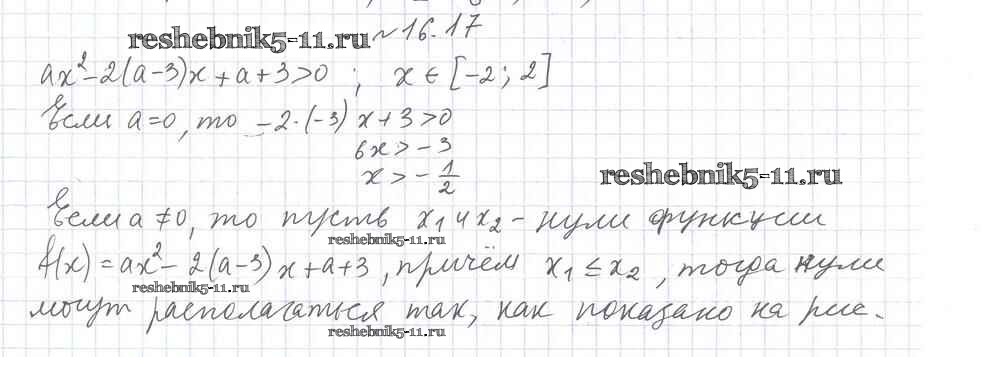 reshebnik5-11.ru №16.17
ax² - 2(a-3)x + a + 3 > 0 ; x ∈ [-2; 2]
Если a = 0, то -2·(-3)x + 3 > 0
6x > -3
x > -1/2
reshebnik5-11.ru
Если a ≠ 0, то пусть x₁ и x₂ - нули функции
reshebnik5-11.ru
f(x) = ax² - 2(a-3)x + a + 3, причём x₁ ≤ x₂, тогда нули
reshebnik5-11.ru
могут располагаться так, как показано на рис.
reshebnik5-11.ru